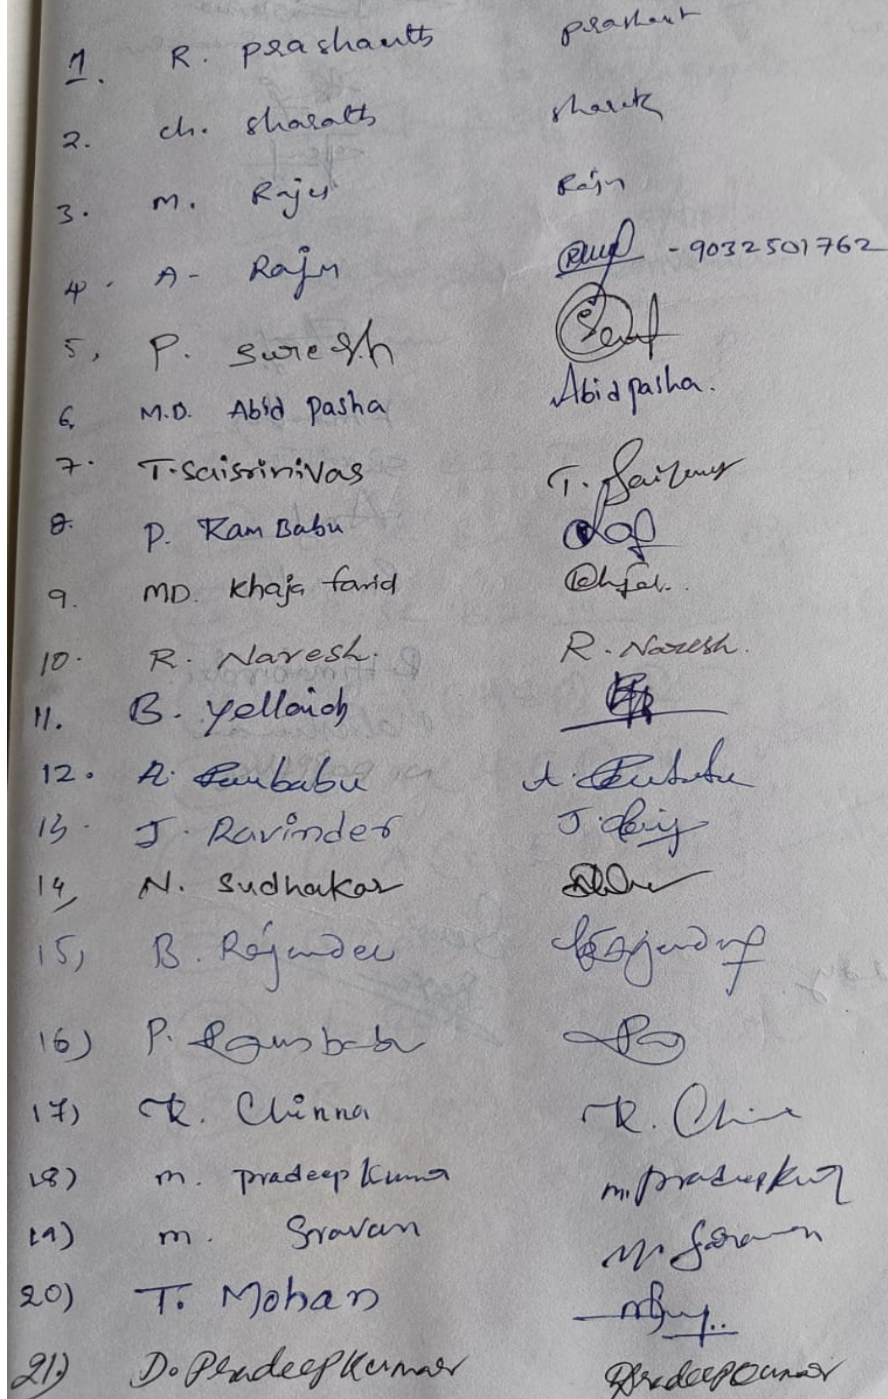 1. R. Prashanth prashant
2. ch. sharath sharath
3. M. Raju Raju
4. A- Raju - 9032501762
5, P. Suresh
6, M.D. Abid Pasha Abid pasha.
7. T. Saisrinivas T.
8. P. Ram Babu
9. MD. Khaja farid
10. R. Naresh. R. Naresh.
11. B. Yellaiah
12. A. Rambabu A.
13. J. Ravinder J.
14, N. Sudhakar
15, B. Rajender
16) P. Rambabu
17) K. Chinna K.
18) m. pradeep kumar m. pradeep
19) m. Sravan
20) T. Mohan
21) D. Pradeep Kumar